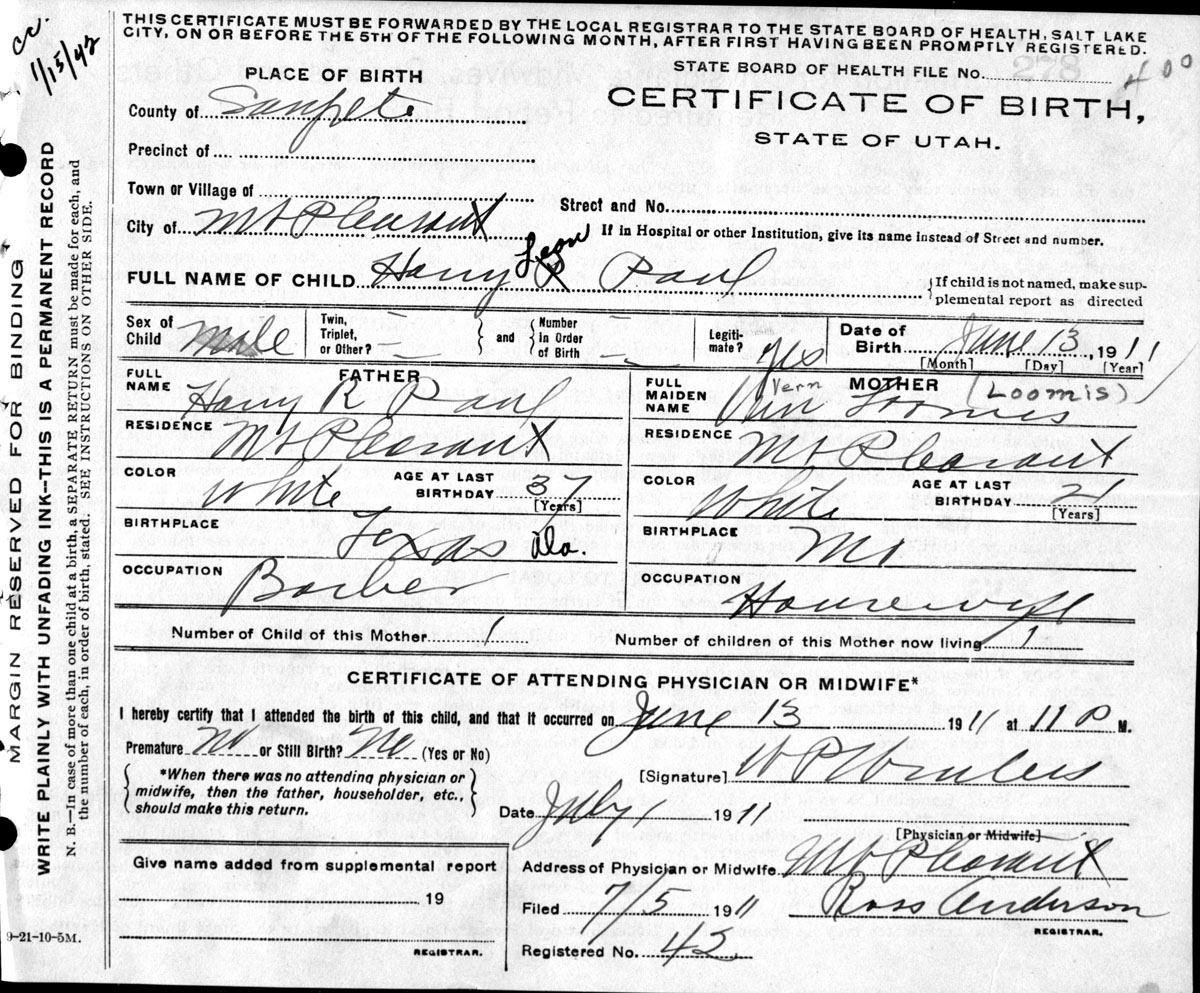 cc.
1/15/42
THIS CERTIFICATE MUST BE FORWARDED BY THE LOCAL REGISTRAR TO THE STATE BOARD OF HEALTH, SALT LAKE
CITY, ON OR BEFORE THE 5TH OF THE FOLLOWING MONTH, AFTER FIRST HAVING BEEN PROMPTLY REGISTERED.
PLACE OF BIRTH
STATE BOARD OF HEALTH FILE No. 278 400
County of Sanpete
CERTIFICATE OF BIRTH,
STATE OF UTAH.
Precinct of
Town or Village of
Street and No.
City of Mt Pleasant
If in Hospital or other Institution, give its name instead of Street and number.
Leon
FULL NAME OF CHILD Harry R Paul
If child is not named, make sup-
plemental report as directed
Sex of
Child Male
Twin,
Triplet,
or Other? and
Number
In Order
of Birth
Legiti-
mate? Yes
Date of
Birth June 13, 1911
[Month] [Day] [Year]
FATHER
FULL
NAME Harry R Paul
MOTHER
FULL
MAIDEN
NAME Vern Loomis (Loomis)
RESIDENCE Mt Pleasant
RESIDENCE Mt Pleasant
COLOR White
AGE AT LAST
BIRTHDAY 37
[Years]
COLOR White
AGE AT LAST
BIRTHDAY 21
[Years]
BIRTHPLACE Texas Ala.
BIRTHPLACE Mo
OCCUPATION Barber
OCCUPATION Housewife
Number of Child of this Mother 1
Number of children of this Mother now living 1
CERTIFICATE OF ATTENDING PHYSICIAN OR MIDWIFE*
I hereby certify that I attended the birth of this child, and that it occurred on June 13 1911 at 11 P M.
Premature No or Still Birth? No (Yes or No)
*When there was no attending physician or
midwife, then the father, householder, etc.,
should make this return.
[Signature] W P Winters
Date July 1 1911
[Physician or Midwife]
Give name added from supplemental report
19
REGISTRAR.
Address of Physician or Midwife Mt Pleasant
Filed 7/5 1911 Ross Anderson
REGISTRAR.
Registered No. 42
MARGIN RESERVED FOR BINDING
WRITE PLAINLY WITH UNFADING INK—THIS IS A PERMANENT RECORD
N. B.—In case of more than one child at a birth, a SEPARATE RETURN must be made for each, and
the number of each, in order of birth, stated. SEE INSTRUCTIONS ON OTHER SIDE.
9-21-10-5M.